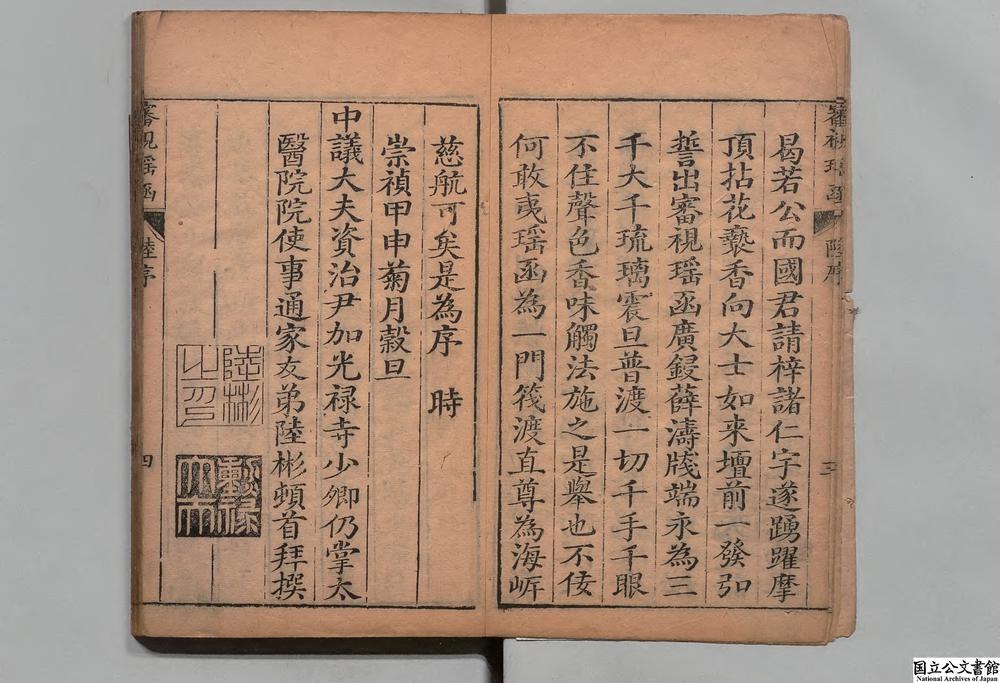 曷若公而國君請梓諸仁字遂踴躍摩
頂拈花褻香向大士如來壇前一發弘
誓出審視瑶函廣鋟薛濤牋端永為三
千大千琉璃震旦普渡一切千手千眼
不住聲色香味觸法施之是舉也不佞
何敢戔瑶函為一門筏渡直尊為海㟁
慈航可矣是為序 時
崇禎甲申菊月穀旦
中議大夫資治尹加光禄寺少卿仍掌太
醫院院使事通家友弟陸彬頓首拜撰
陸彬之印
審視瑶函 陸序 三
審視瑶函 陸序 四
国立公文書館
National Archives of Japan